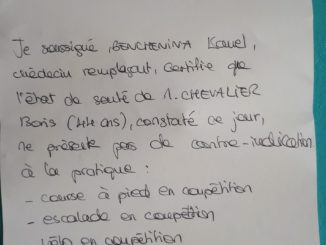 Je soussigné, BENCHENINA Kamel,
médecin remplaçant, certifie que
l'état de santé de M. CHEVALIER
Boris (44 ans), constaté ce jour,
ne présente pas de contre-indication
à la pratique :
- course à pied en compétition
- escalade en compétition
vélo en compétition